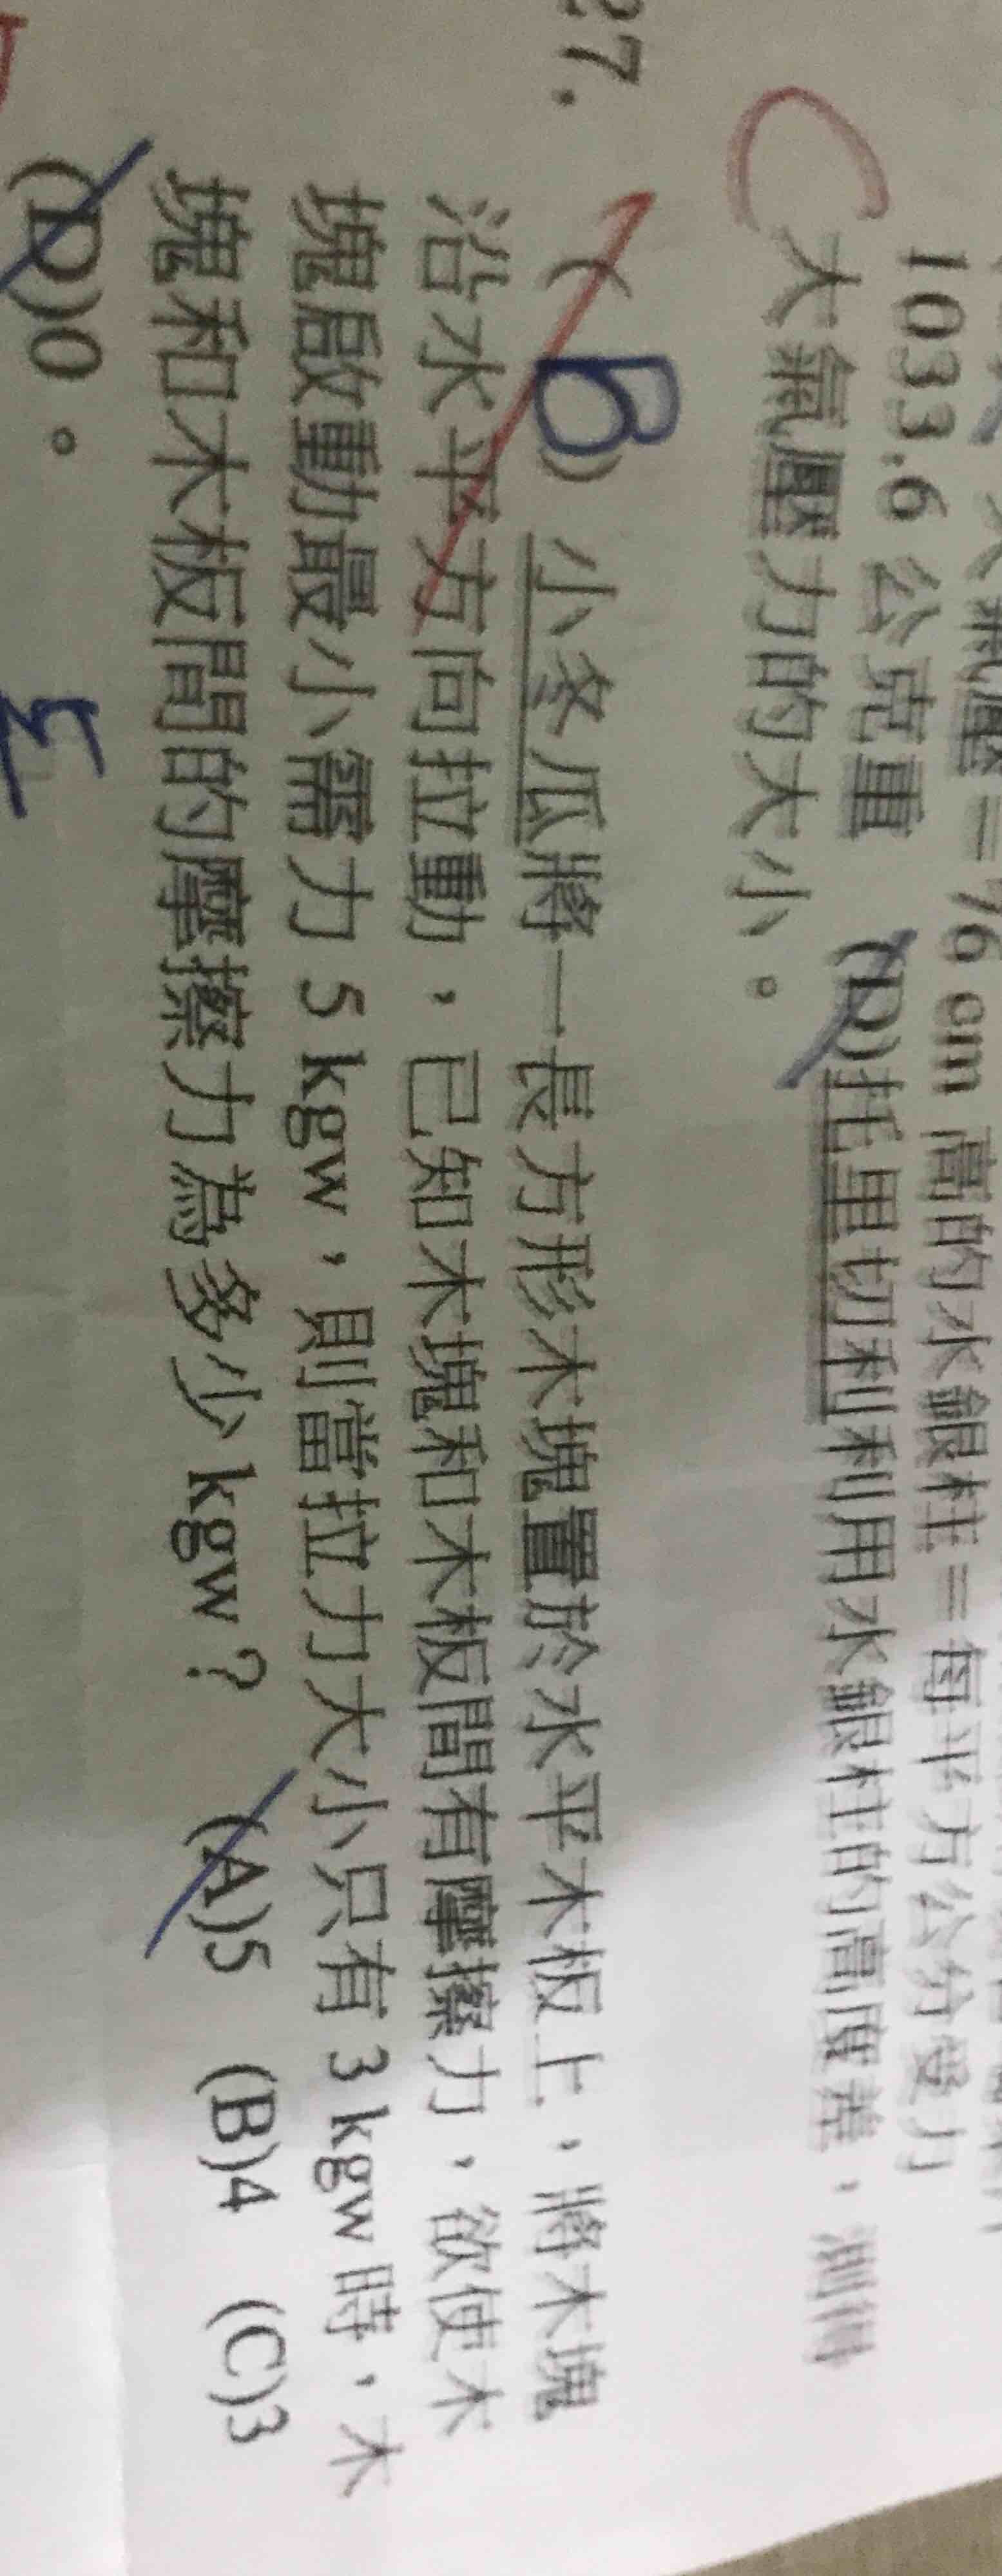 大氣壓=76 cm 高的水銀柱=每平方公分受力
1033.6 公克重 (D)托里切利利用水銀柱的高度差,測得
大氣壓力的大小。
C
27. (B) 小多瓜將一長方形木塊置於水平木板上,將木塊
沿水平方向拉動,已知木塊和木板間有摩擦力,欲使木
塊啟動最小需力 5 kgw,則當拉力大小只有 3 kgw 時,木
塊和木板間的摩擦力為多少 kgw? (A)5 (B)4 (C)3
(D)0。